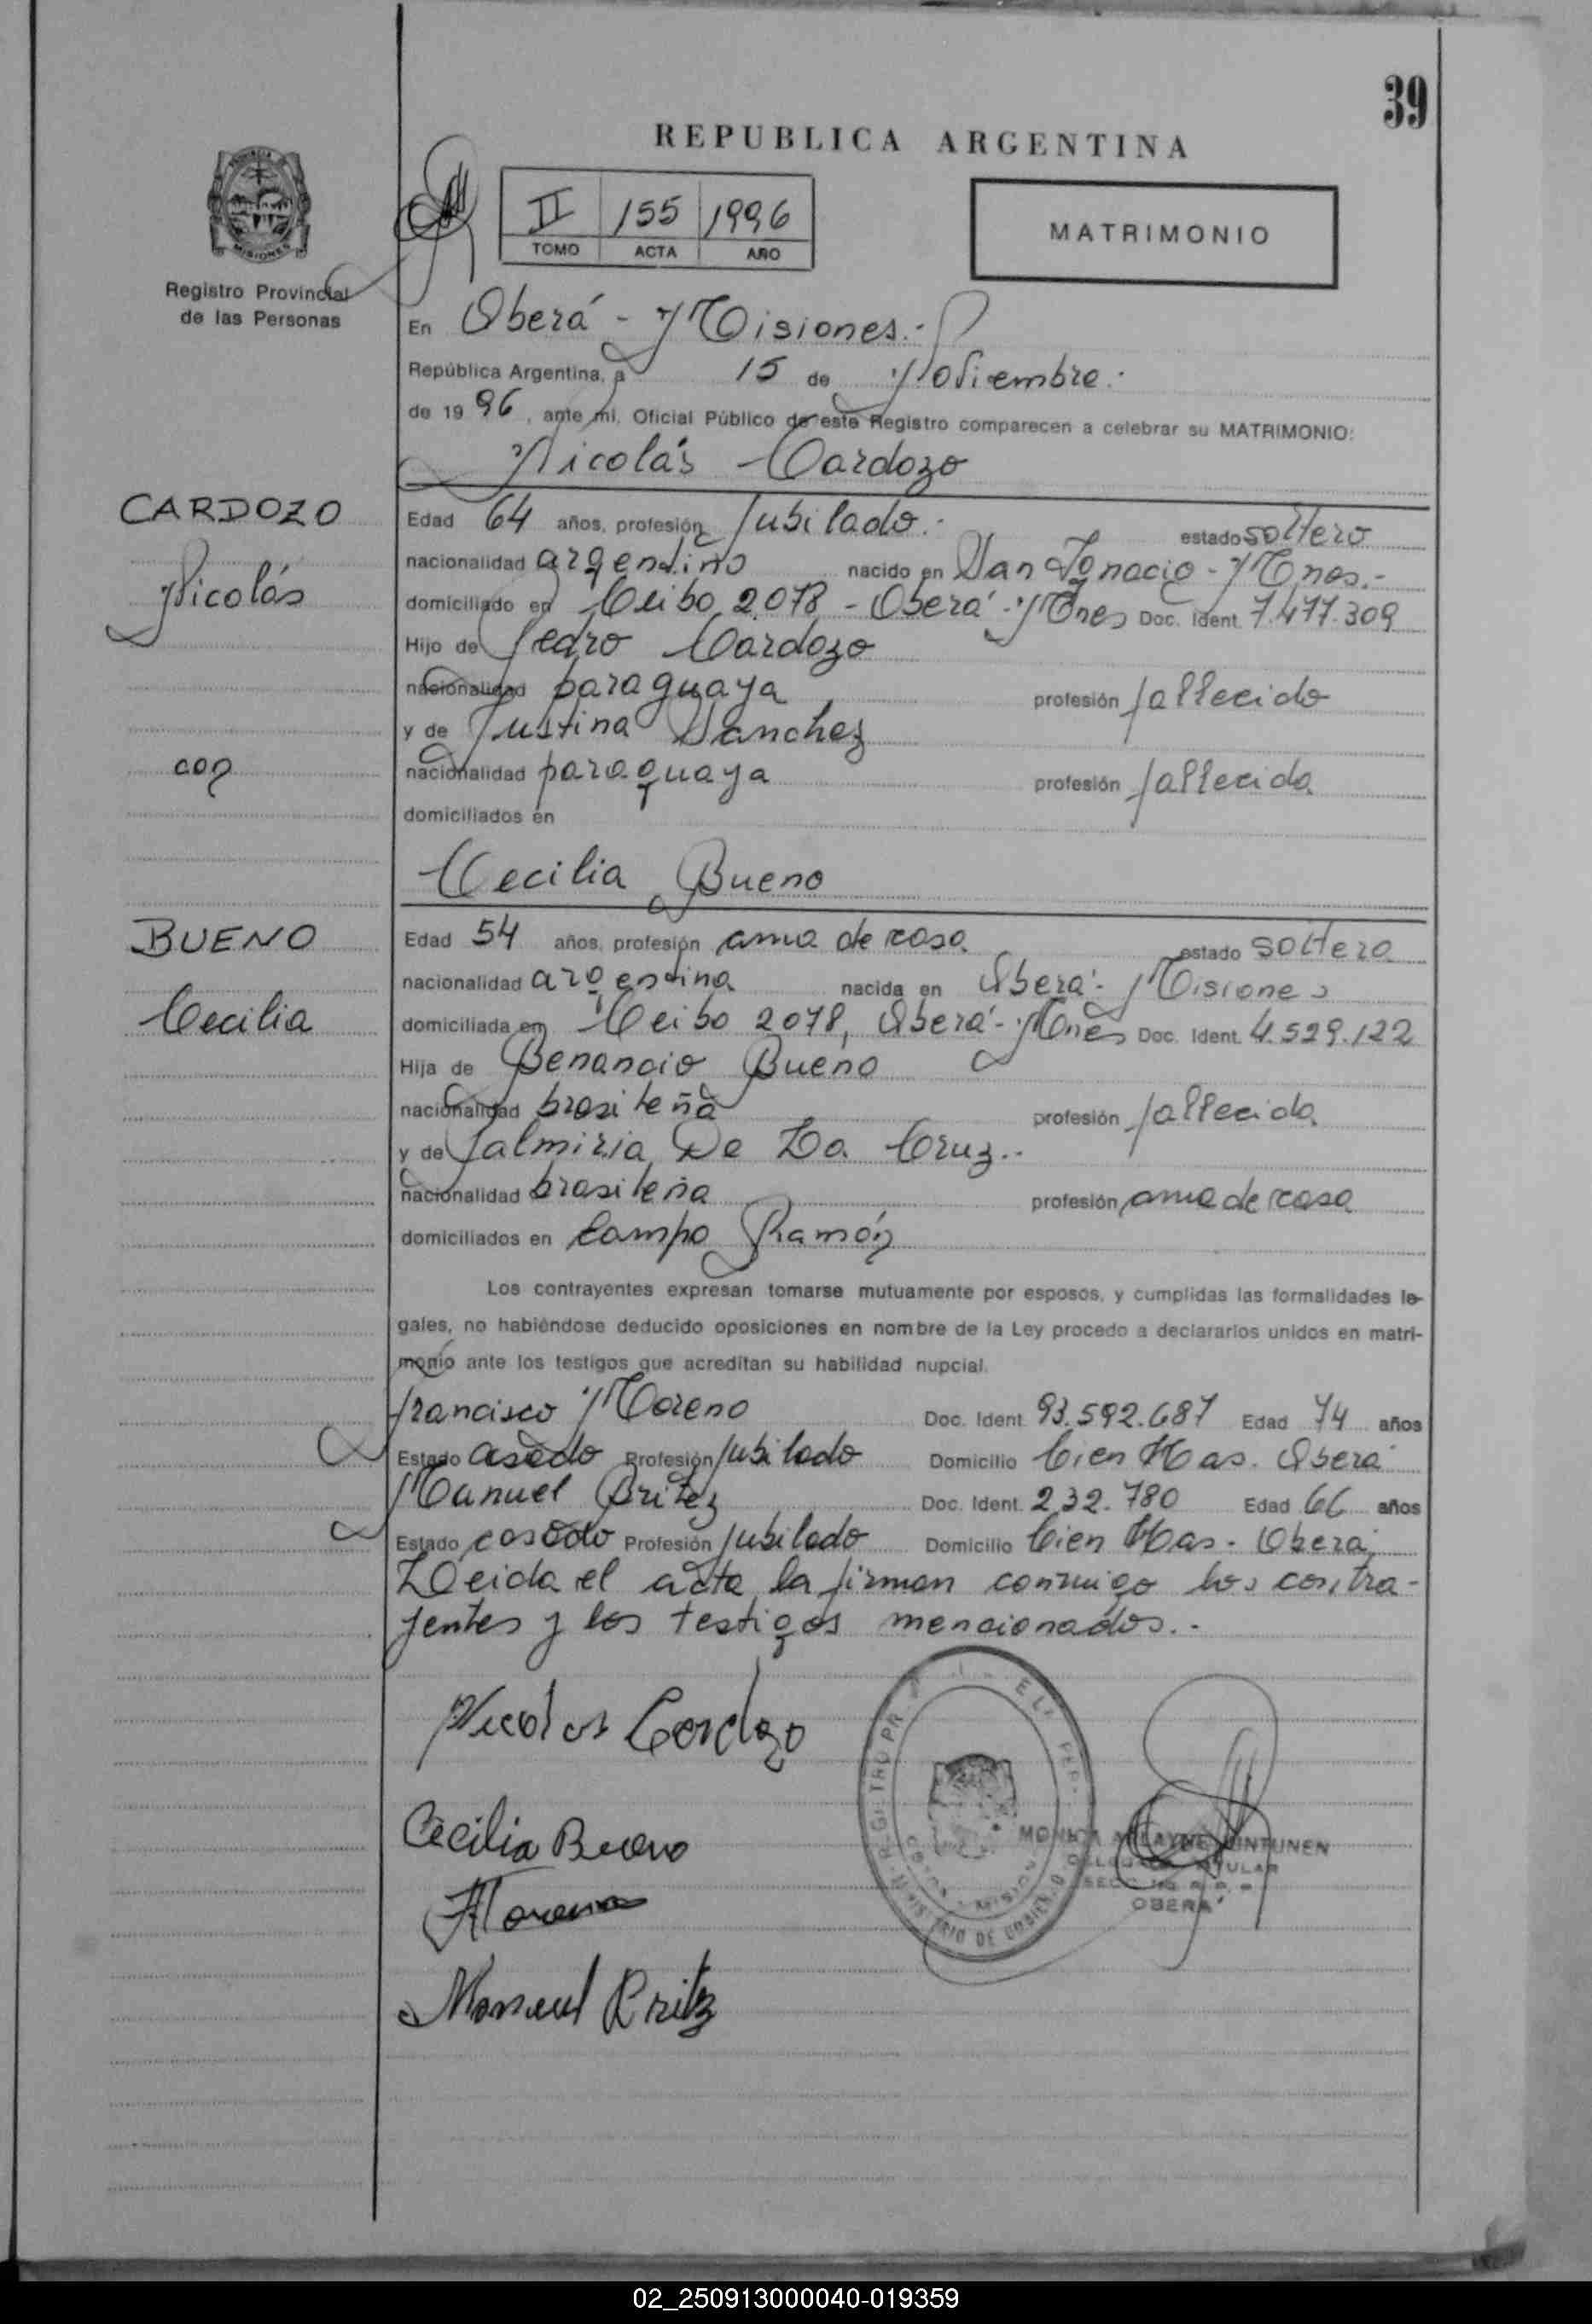 39
REPUBLICA ARGENTINA
II 155 1996
TOMO ACTA AÑO
MATRIMONIO
MISIONES
Registro Provincial
de las Personas
En Oberá - Misiones.-
República Argentina, a 15 de Noviembre.-
de 19 96, ante mi, Oficial Público de este Registro comparecen a celebrar su MATRIMONIO:
Nicolás Cardozo
CARDOZO
Nicolás
con
Edad 64 años, profesión Jubilado.- estado soltero
nacionalidad argentino nacido en San Ignacio - Mnes.-
domiciliado en Ceibo 2078 - Oberá - Mnes Doc. Ident. 7.477.309
Hijo de Pedro Cardozo
nacionalidad paraguaya profesión fallecido
y de Justina Sanchez
nacionalidad paraguaya profesión fallecida
domiciliados en
Cecilia Bueno
BUENO
Cecilia
Edad 54 años, profesión ama de casa estado soltera
nacionalidad argentina nacida en Oberá - Misiones
domiciliada en Ceibo 2078, Oberá - Mnes Doc. Ident. 4.529.122
Hija de Benancio Bueno
nacionalidad brasileña profesión fallecida
y de Palmiria De La Cruz.-
nacionalidad brasileña profesión ama de casa
domiciliados en Campo Ramón
Los contrayentes expresan tomarse mutuamente por esposos, y cumplidas las formalidades le-
gales, no habiéndose deducido oposiciones en nombre de la Ley procedo a declararlos unidos en matri-
monio ante los testigos que acreditan su habilidad nupcial.
Francisco Moreno Doc. Ident. 93.592.687 Edad 74 años
Estado casado Profesión Jubilado Domicilio Cien Has. Oberá
Manuel Britez Doc. Ident. 232.780 Edad 66 años
Estado casado Profesión Jubilado Domicilio Cien Has - Oberá
Leida el acta la firman conmigo los contra-
yentes y los testigos mencionados.-
Nicolas Cardozo
Cecilia Bueno
FMoreno
Manuel Britez
MINISTRIO DE GOBIERNO
OBERA
02_250913000040-019359